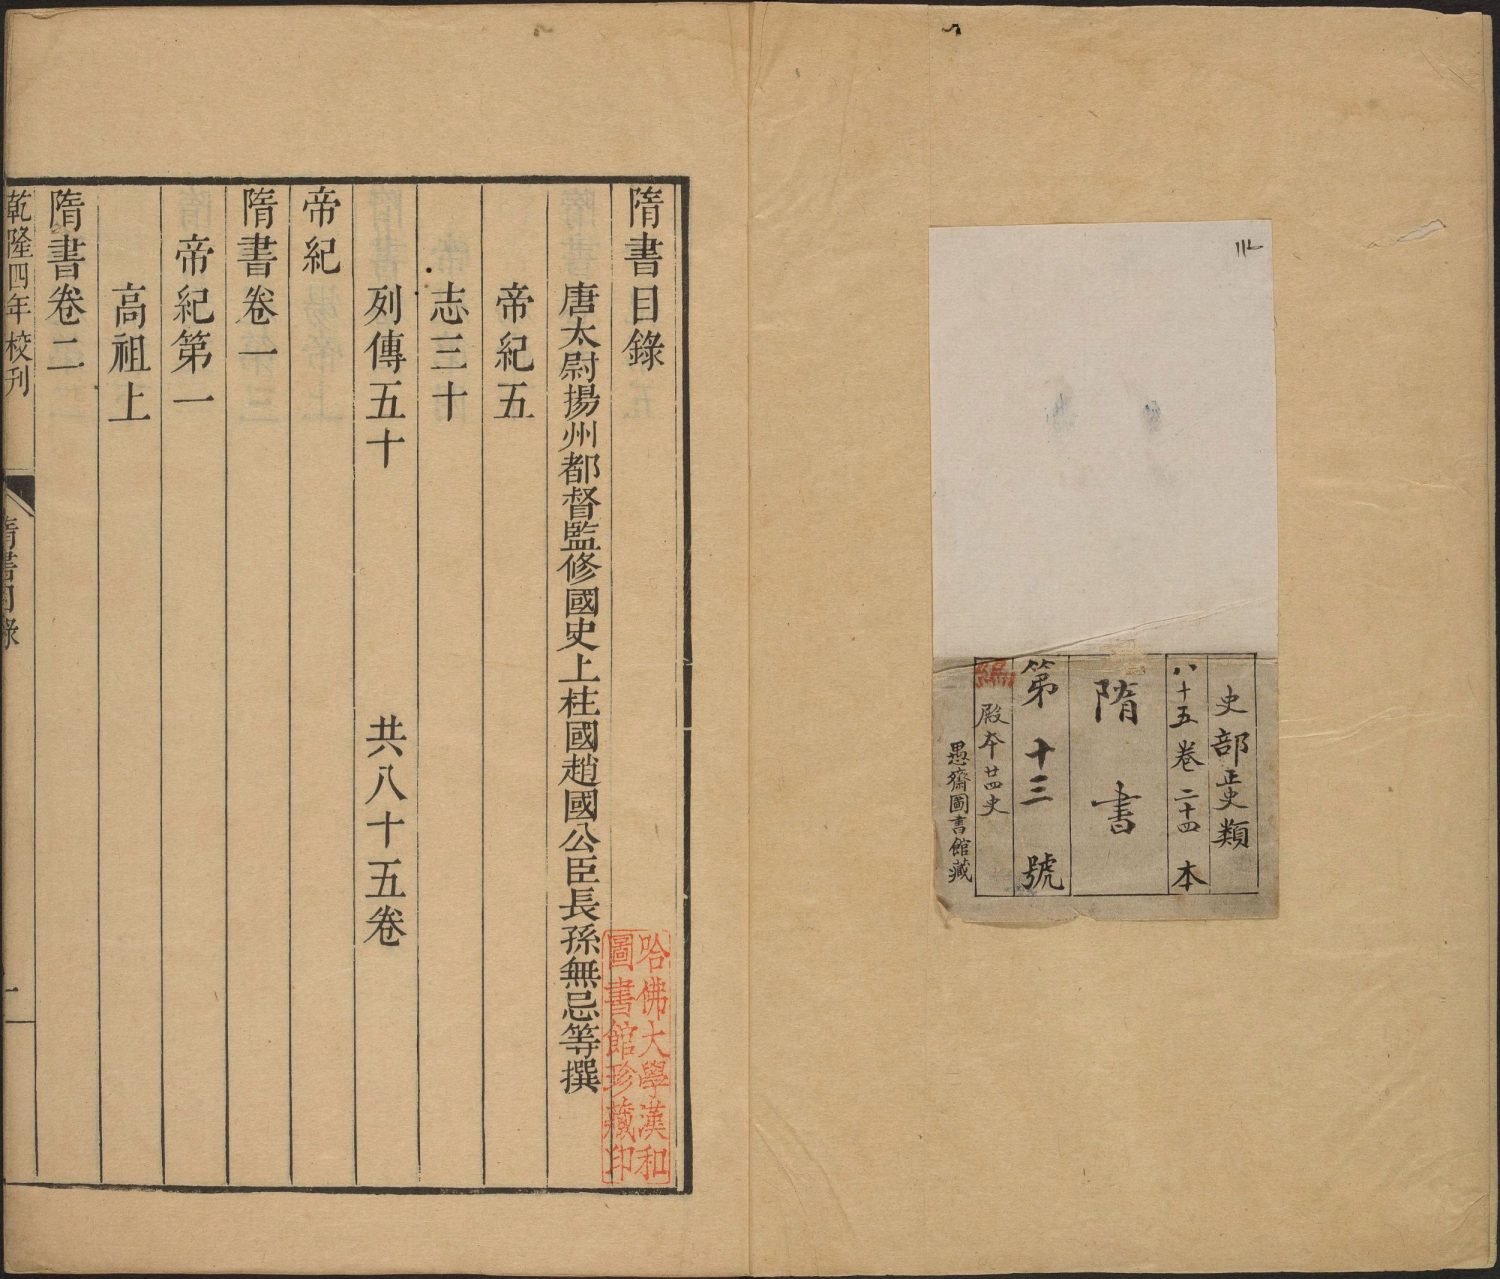 史部正史類
八十五卷二十四本
隋書
第十三號
編
殿本廿四史
愚齋圖書館藏
隋書目錄
唐太尉揚州都督監修國史上柱國趙國公臣長孫無忌等撰
帝紀五
志三十
列傳五十 共八十五卷
帝紀
隋書卷一
帝紀第一
高祖上
隋書卷二
乾隆四年校刊
隋書目錄
一
哈佛大學漢和
圖書館珍藏印